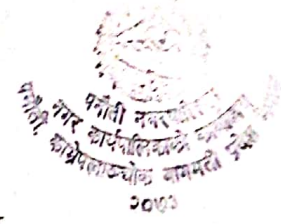 पनौती नगरपालिका
नगर कार्यपालिकाको कार्यालय
पनौती, काभ्रेपलाञ्चोक बागमती प्रदेश
२०७३